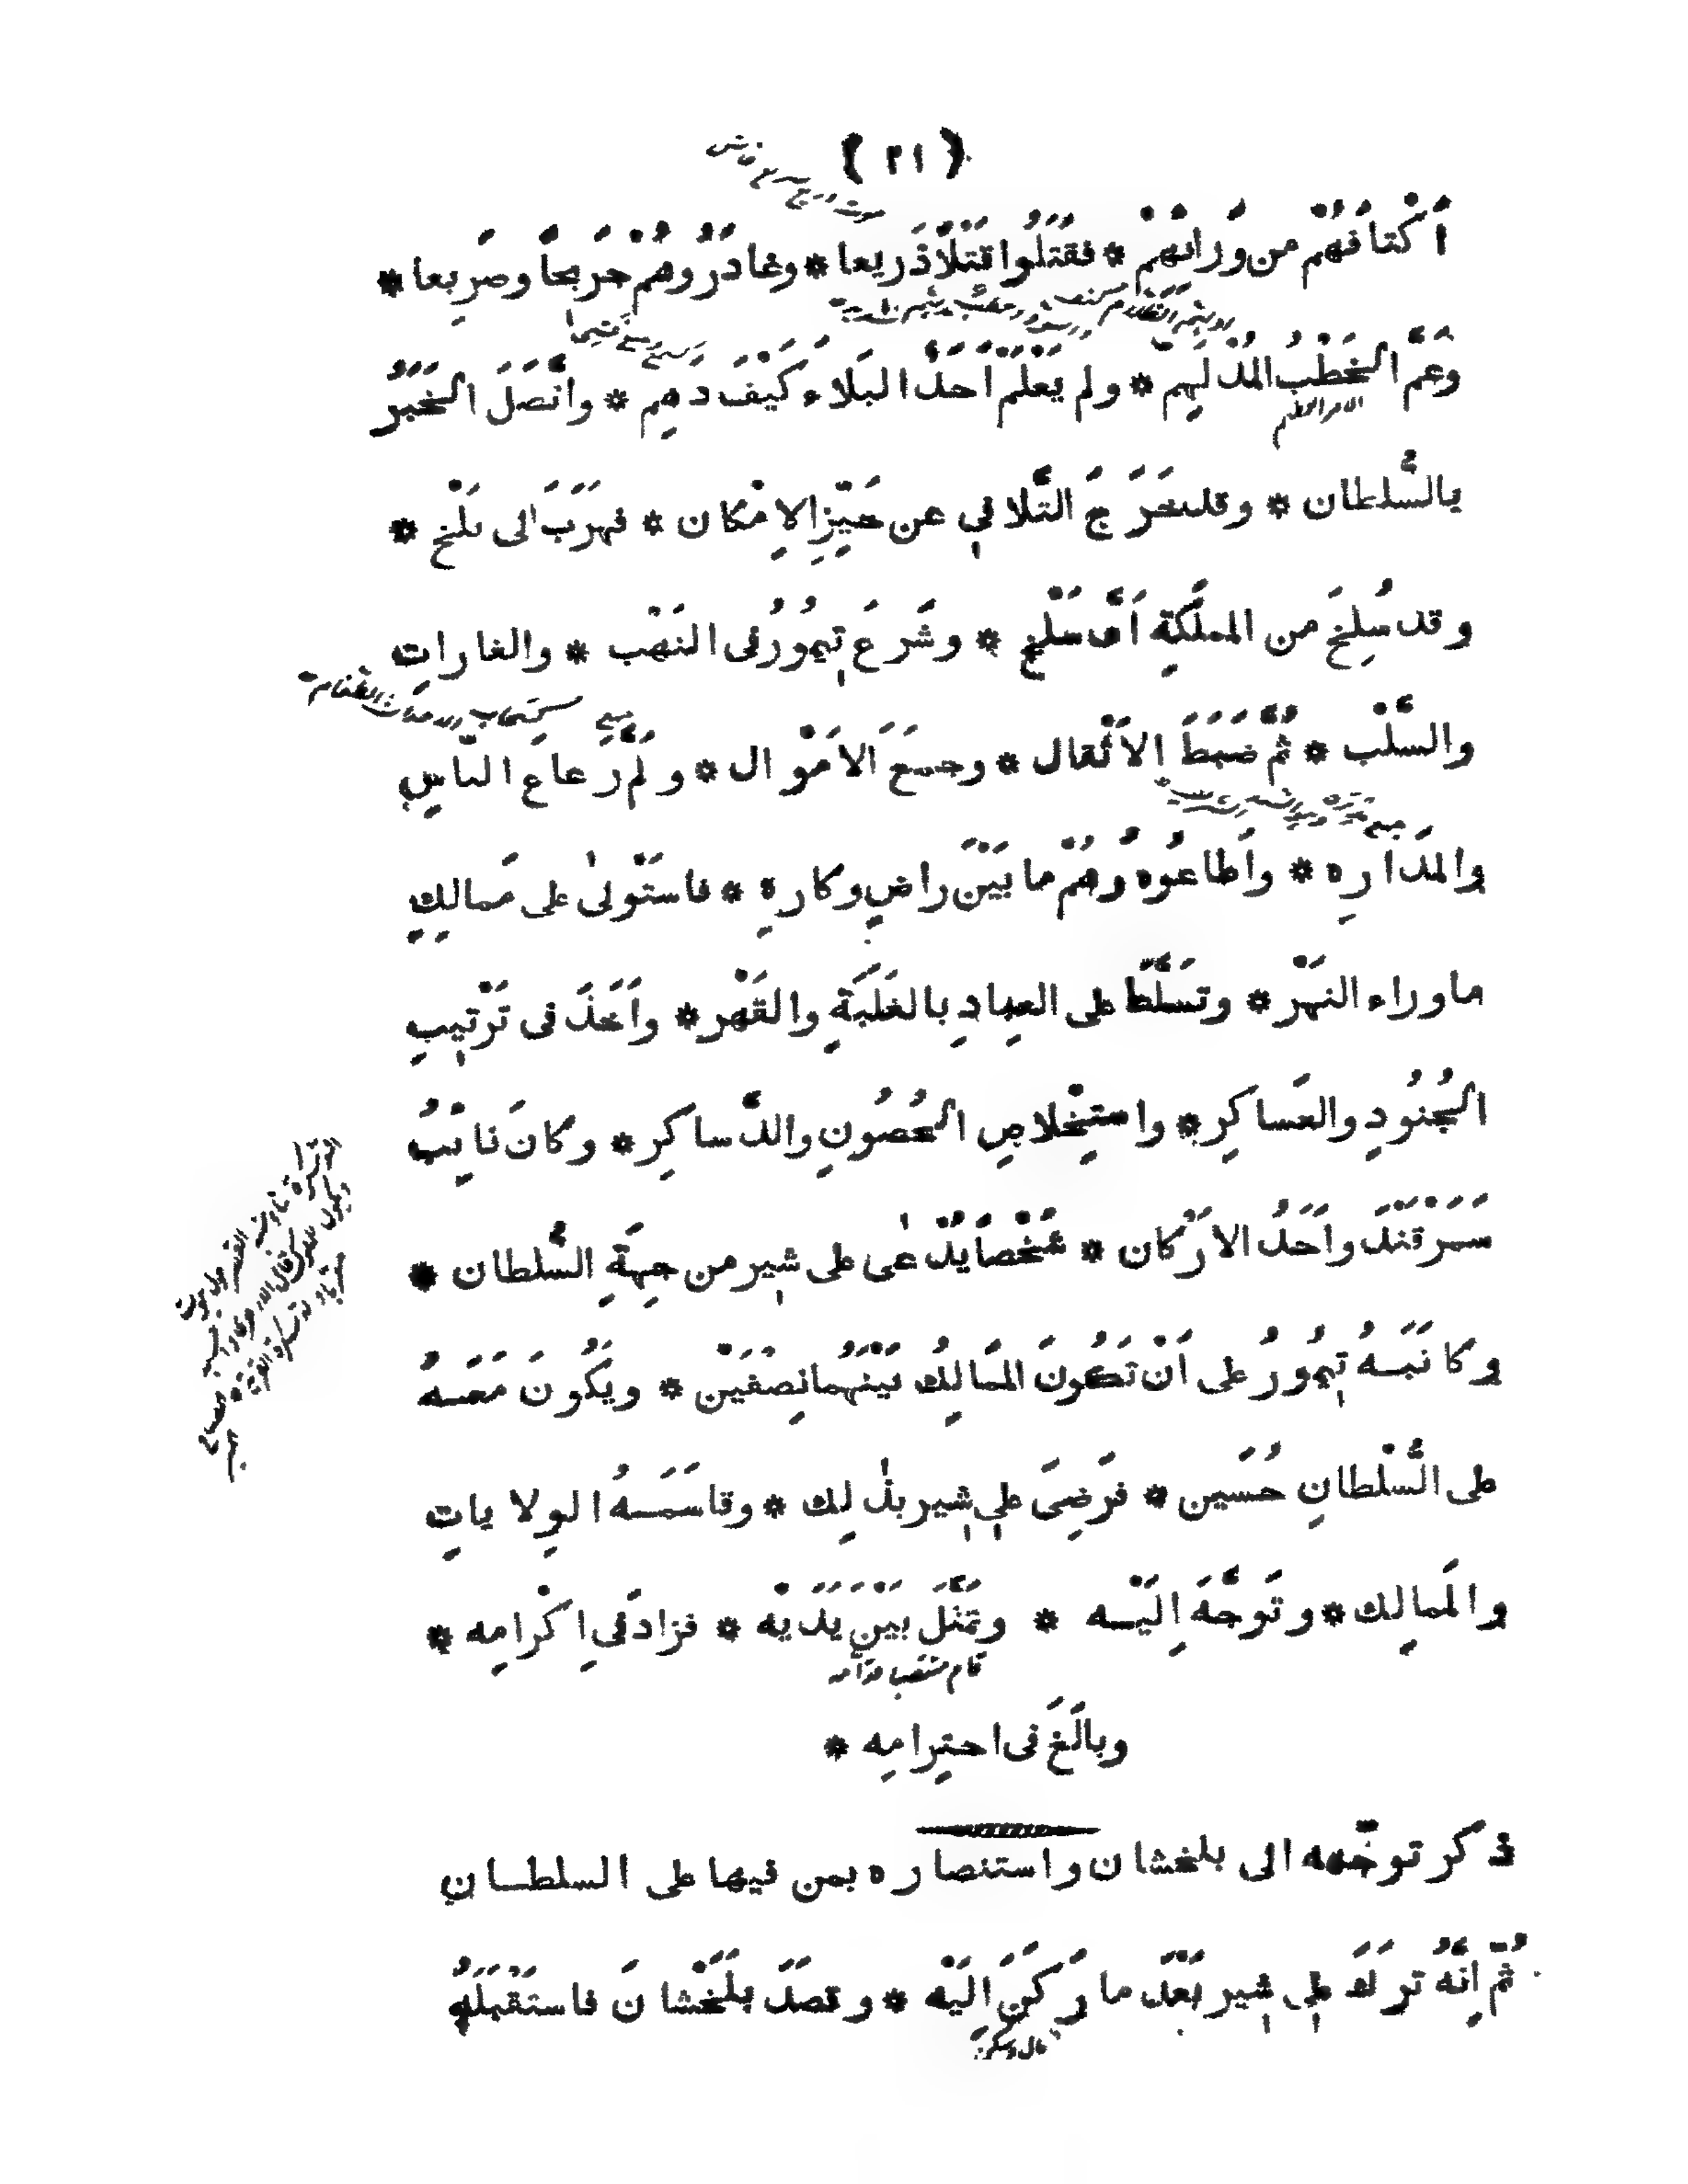 ( ٢١ )
أَكْتافَهُمْ من وَرائهم * فقَتَلُوا قَتْلاً ذَريعا * وغادَرُوهُمْ جَريحاً وصَريعا *
وَعَمَّ الخَطْبُ المُدْلَهِمّ * ولم يَعْلَمْ اَحَدٌ البَلاء كَيْفَ دَهِم * واتَّصَلَ الخَبَرُ
بالسُّلطان * وقد خَرَجَ التَّلافي عن حَيِّزِ الاِمْكان * فهرَبَ الى بَلْخ *
وقد سُلِخَ من المملَكَةِ اَىَّ سَلْخ * وشَرَعَ تِيمُورُ فى النَهْب * والغاراتِ
والسَّلْب * ثُمَّ ضبَطَ الاَثْقال * وجمعَ الاَمْوال * ولَمَّ رَعاعَ النّاسِ
والمَدَارِهِ * واَطاعُوهُ وهُمْ ما بَيْنَ راضٍ وكارِهِ * فاستَوْلىٰ على مَمالِكِ
ما وراء النهْر * وتسَلَّطَ على العِبادِ بالغَلَبَةِ والقَهْر * واَخَذَ فى تَرْتيبِ
الجُنُودِ والعَساكِر * واستِخْلاصِ الحُصُونِ والدَّساكِر * وكانَ نائِبُ
سَمَرْقَنْدَ واَحَدُ الاَرْكان * شَخْصاً يُدْعٰى على شير من جِهَةِ السُّلطان *
وكاتَبَهُ تِيمُورُ على اَنْ تَكُونَ المَمالِكُ بَيْنَهُما نِصْفَيْن * ويَكُونَ مَعَهُ
على السُّلْطانِ حُسَين * فرَضِىَ على شير بذٰلِك * وقاسَمَهُ الوِلاياتِ
والمَمالِك * وتَوجَّهَ اِلَيْه * وتمَثَّلَ بَيْنَ يَدَيْه * فزادَ فى اِكْرامِه *
قام منتصبا قدامه
وبالَغَ فى احتِرامِه *
ذكر توجّهه الى بلخشان واستنصاره بمن فيها على السلطان
ثُمَّ اِنَّهُ تركَ على شير بَعْدَ ما رَكَنَ اِلَيْه * وقصَدَ بلَخْشانَ فاستَقْبَلَهُ